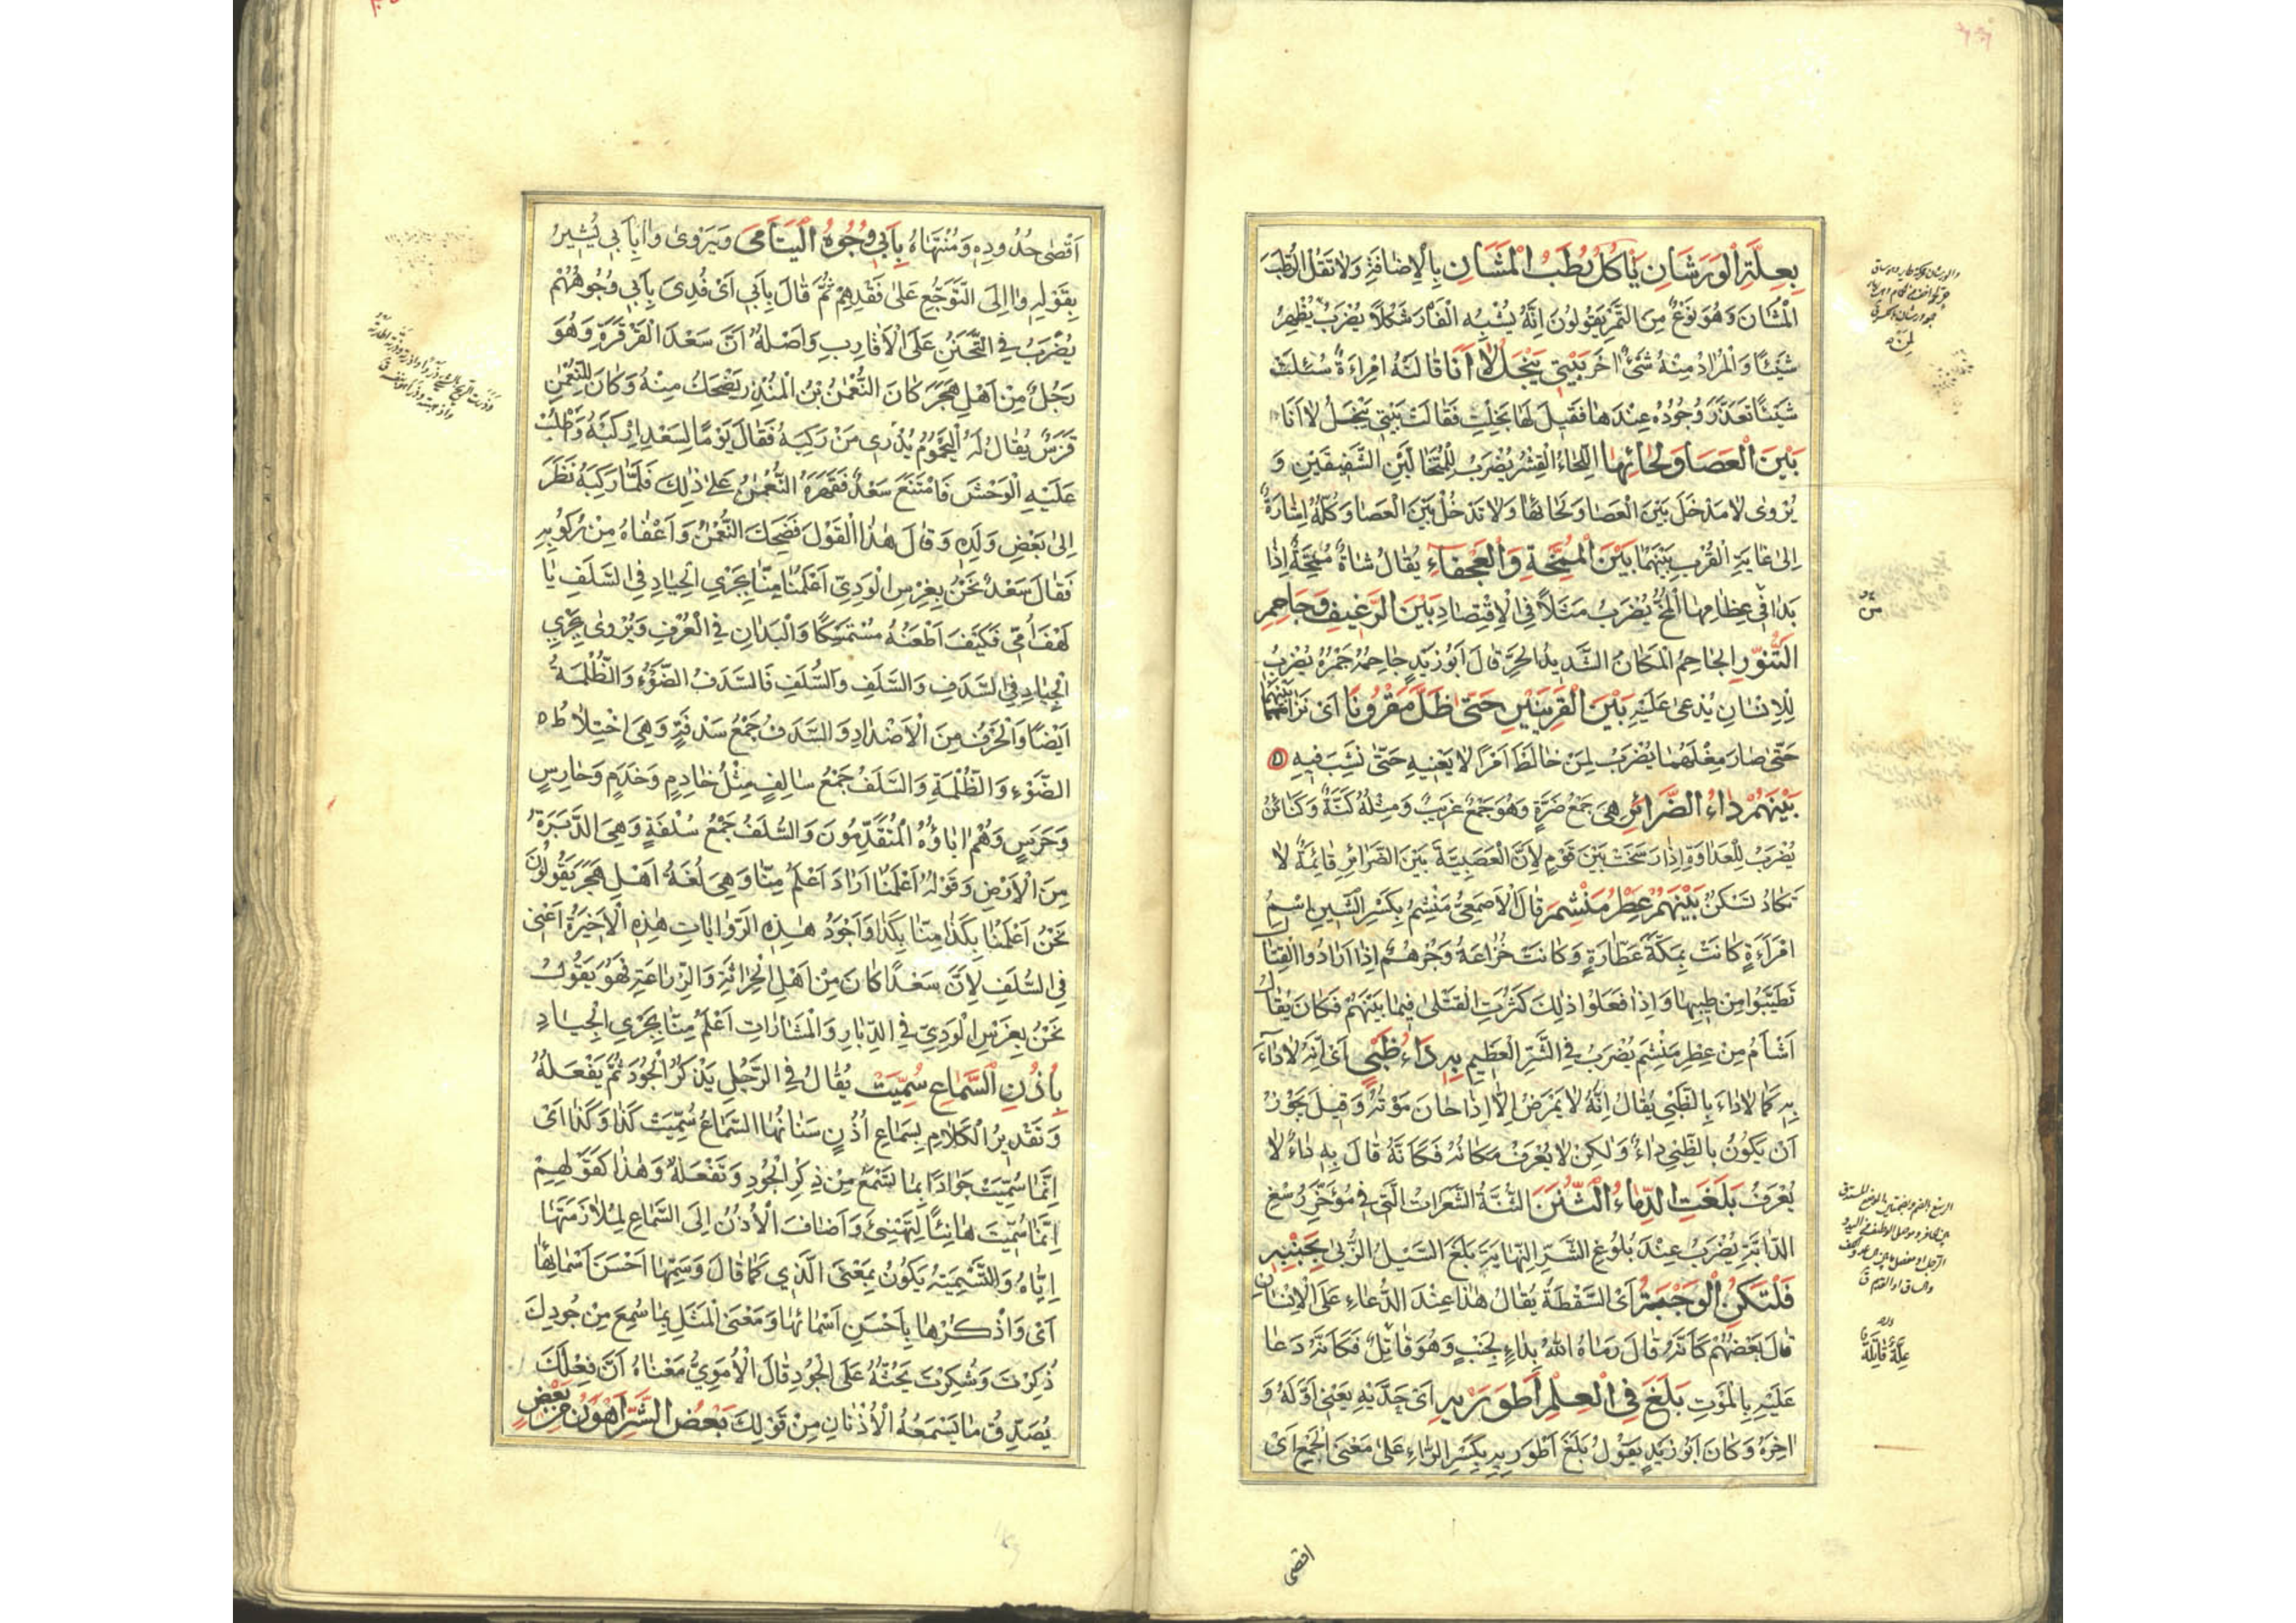 بِعِلَّةِ الْوَرَشَانِ يَأْكُلُ رُطَبَ الْمُشَانِ بِالْاِضَافَةِ وَلَا تَقُلِ الرُّطَبَ
الْمُشَانَ وَهُوَ نَوْعٌ مِنَ التَّمْرِ يَقُولُونَ اِنَّهُ يُشْبِهُ الْفَأْرَ شَكْلًا يُضْرَبُ يُظْهِرُ
شَيْئًا وَالْمُرَادُ مِنْهُ شَىْءٌ اٰخَرُ بَيْتِي يَبْخَلُ لَا اَنَا قَالَتْهُ امْرَاَةٌ سُئِلَتْ
شَيْئًا تَعَذَّرَ وُجُودُهُ عِنْدَهَا فَقِيلَ لَهَا بَخِلْتِ فَقَالَتْ بَيْتِي يَبْخَلُ لَا اَنَا
بَيْنَ الْعَصَا وَلِحَائِهَا اللِّحَاءُ الْقِشْرُ يُضْرَبُ لِلْمُتَخَالَّيْنِ الشَّفِيقَيْنِ وَ
يُرْوٰى لَا مَدْخَلَ بَيْنَ الْعَصَا وَلِحَائِهَا وَلَا تَدْخُلْ بَيْنَ الْعَصَا وَكُلُّهُ اِشَارَةٌ
اِلٰى غَايَةِ الْقُرْبِ بَيْنَهُمَا بَيْنَ الْمُمِخَّةِ وَالْعَجْفَاءِ يُقَالُ شَاةٌ مُمِخَّةٌ اِذَا
بَدَا فِي عِظَامِهَا الْمُخُّ يُضْرَبُ مَثَلًا فِي الْاِقْتِصَادِ بَيْنَ الرَّغِيفِ وَجَاحِمِ
التَّنُّورِ الْجَاحِمُ الْمَكَانُ الشَّدِيدُ الْحَرِّ قَالَ اَبُو زَيْدٍ جَاحِمُهُ جَمْرُهُ يُضْرَبُ
لِلْاِنْسَانِ يُدْعٰى عَلَيْهِ بَيْنَ الْقَرِينَيْنِ حَتّٰى ظَلَّ مَقْرُونًا اَىْ نَزَا بَيْنَهُمَا
حَتّٰى صَارَ مِثْلَهُمَا يُضْرَبُ لِمَنْ خَالَطَ اَمْرًا لَا يَعْنِيهِ حَتّٰى نَشِبَ فِيهِ
بَيْنَهُمْ دَاءُ الضَّرَائِرِ هِىَ جَمْعُ ضَرَّةٍ وَهُوَ جَمْعٌ غَرِيبٌ وَمِثْلُهُ كَنَّةٌ وَكَنَائِنُ
يُضْرَبُ لِلْعَدَاوَةِ اِذَا رَسَخَتْ بَيْنَ قَوْمٍ لِاَنَّ الْعَصَبِيَّةَ بَيْنَ الضَّرَائِرِ قَائِمَةٌ لَا
تَكَادُ تَسْكُنُ بَيْنَهُمْ عِطْرُ مَنْشِمَ قَالَ الْاَصْمَعِىُّ مَنْشِمُ بِكَسْرِ الشِّينِ اسْمُ
امْرَاَةٍ كَانَتْ بِمَكَّةَ عَطَّارَةٍ وَكَانَتْ خُزَاعَةُ وَجُرْهُمُ اِذَا اَرَادُوا الْقِتَالَ
تَطَيَّبُوا مِنْ طِيبِهَا وَاِذَا فَعَلُوا ذٰلِكَ كَثُرَتِ الْقَتْلٰى فِيمَا بَيْنَهُمْ فَكَانَ يُقَالُ
اَشْاَمُ مِنْ عِطْرِ مَنْشِمَ يُضْرَبُ فِي الشَّرِّ الْعَظِيمِ بِهِ دَاءُ ظَبْيٍ اَىْ اِنَّهُ لَا دَاءَ
بِهِ كَمَا لَا دَاءَ بِالظَّبْيِ يُقَالُ اِنَّهُ لَا يَمْرَضُ اِلَّا اِذَا حَانَ مَوْتُهُ وَقِيلَ يَجُوزُ
اَنْ يَكُونَ بِالظَّبْيِ دَاءٌ وَلٰكِنْ لَا يُعْرَفُ مَكَانُهُ فَكَاَنَّهُ قَالَ بِهِ دَاءٌ لَا
يُعْرَفُ بَلَغَتِ الدِّمَاءُ الثُّنَنَ الثُّنَّةُ الشَّعَرَاتُ الَّتِي فِي مُؤَخَّرِ رُسْغِ
الدَّابَّةِ يُضْرَبُ عِنْدَ بُلُوغِ الشَّرِّ النِّهَايَةَ بَلَغَ السَّيْلُ الزُّبٰى بِجَنْبِهِ
فَلْتَكُنِ الْوَجْبَةُ اَىِ السَّقْطَةُ يُقَالُ هٰذَا عِنْدَ الدُّعَاءِ عَلَى الْاِنْسَانِ
قَالَ بَعْضُهُمْ كَاَنَّهُ قَالَ رَمَاهُ اللّٰهُ بِدَاءٍ بِجَنْبٍ وَهُوَ قَاتِلٌ فَكَاَنَّهُ دَعَا
عَلَيْهِ بِالْمَوْتِ بَلَغَ فِي الْعِلْمِ اَطْوَرَيْهِ اَىْ حَدَّيْهِ يَعْنِي اَوَّلَهُ وَ
اٰخِرَهُ وَكَانَ اَبُو زَيْدٍ يَقُولُ بَلَغَ اَطْوَرِيهِ بِكَسْرِ الرَّاءِ عَلٰى مَعْنَى الْجَمْعِ اَىْ
اقصى
اَقْصٰى حُدُودِهِ وَمُنْتَهَاهُ بِاَبِي وُجُوهُ الْيَتَامٰى وَيُرْوٰى وَا بِاَبِي يُشِيرُ
بِقَوْلِهِ وَا اِلَى التَّوَجُّعِ عَلٰى فَقْدِهِمْ ثُمَّ قَالَ بِاَبِي اَىْ فُدِىَ بِاَبِي وُجُوهُهُمْ
يُضْرَبُ فِي التَّحَنُّنِ عَلَى الْاَقَارِبِ وَاَصْلُهُ اَنَّ سَعْدَ الْقَرْقَرَةِ وَهُوَ
رَجُلٌ مِنْ اَهْلِ هَجَرَ كَانَ النُّعْمٰنُ بْنُ الْمُنْذِرِ يَضْحَكُ مِنْهُ وَكَانَ لِلنُّعْمٰنِ
فَرَسٌ يُقَالُ لَهُ الْيَحْمُومُ يُذْرِى مَنْ رَكِبَهُ فَقَالَ يَوْمًا لِسَعْدٍ ارْكَبْهُ وَاطْلُبْ
عَلَيْهِ الْوَحْشَ فَامْتَنَعَ سَعْدٌ فَقَهَرَهُ النُّعْمٰنُ عَلٰى ذٰلِكَ فَلَمَّا رَكِبَهُ نَظَرَ
اِلٰى بَعْضِ وَلَدِهِ وَقَالَ هٰذَا الْقَوْلَ فَضَحِكَ النُّعْمٰنُ وَاَعْفَاهُ مِنْ رُكُوبِهِ
فَقَالَ سَعْدٌ نَحْنُ بِغَرْسِ الْوَدِىِّ اَعْلَمُنَا مِنَّا بِجَرْىِ الْجِيَادِ فِي السَّلَفِ يَا
لَهْفَ اُمِّي فَكَيْفَ اَطْعَنُهُ مُسْتَمْسِكًا وَالْيَدَانِ فِي الْعُرْفِ وَيُرْوٰى بِجَرْىِ
الْجِيَادِ فِي السَّدَفِ وَالسَّلَفِ وَالسُّلَفِ فَالسَّدَفُ الضَّوْءُ وَالظُّلْمَةُ
اَيْضًا وَالْحَرْفُ مِنَ الْاَضْدَادِ وَالسُّدَفُ جَمْعُ سُدْفَةٍ وَهِىَ اخْتِلَاطُ
الضَّوْءِ وَالظُّلْمَةِ وَالسَّلَفُ جَمْعُ سَالِفٍ مِثْلُ خَادِمٍ وَخَدَمٍ وَحَارِسٍ
وَحَرَسٍ وَهُمْ اٰبَاؤُهُ الْمُتَقَدِّمُونَ وَالسُّلَفُ جَمْعُ سُلْفَةٍ وَهِىَ الدَّبَرَةُ
مِنَ الْاَرْضِ وَقَوْلُهُ اَعْلَمُنَا اَرَادَ اَعْلَمُ مِنَّا وَهِىَ لُغَةُ اَهْلِ هَجَرَ يَقُولُونَ
نَحْنُ اَعْلَمُنَا بِكَذَا مِنَّا بِكَذَا وَاَجْوَدُ هٰذِهِ الرِّوَايَاتِ هٰذِهِ الْاَخِيرَةُ اَعْنِي
فِي السُّلَفِ لِاَنَّ سَعْدًا كَانَ مِنْ اَهْلِ الْحِرَاثَةِ وَالزِّرَاعَةِ فَهُوَ يَقُولُ
نَحْنُ بِغَرْسِ الْوَدِىِّ فِي الدِّبَارِ وَالْمَشَارَاتِ اَعْلَمُ مِنَّا بِجَرْىِ الْجِيَادِ
بِاُذُنِ السَّمَاعِ سُمِّيَتْ يُقَالُ فِي الرَّجُلِ يَذْكُرُ الْجُودَ ثُمَّ يَفْعَلُهُ
وَتَقْدِيرُ الْكَلَامِ بِسَمَاعِ اُذُنٍ شَانُهَا السَّمَاعُ سُمِّيَتْ كَذَا وَكَذَا اَىْ
اِنَّمَا سُمِّيَتْ جَوَادًا بِمَا تَسْمَعُ مِنْ ذِكْرِ الْجُودِ وَتَفْعَلُهُ وَهٰذَا كَقَوْلِهِمْ
اِنَّمَا سُمِّيَتْ هَانِئًا لِتَهْنِئَ وَاَضَافَ الْاُذُنَ اِلَى السَّمَاعِ لِمُلَازَمَتِهَا
اِيَّاهُ وَالتَّسْمِيَةُ يَكُونُ بِمَعْنَى الَّذِي كَمَا قَالَ وَسَمِّهَا اَحْسَنَ اَسْمَائِهَا
اَىْ وَاذْكُرْهَا بِاَحْسَنِ اَسْمَائِهَا وَمَعْنَى الْمَثَلِ بِمَا سُمِعَ مِنْ جُودِكَ
ذُكِرْتَ وَشُكِرْتَ يَحُثُّهُ عَلَى الْجُودِ قَالَ الْاُمَوِىُّ مَعْنَاهُ اَنَّ فِعْلَكَ
يُصَدِّقُ مَا يَسْمَعُهُ الْاُذُنَانِ مِنْ قَوْلِكَ بَعْضُ الشَّرِّ اَهْوَنُ مِنْ بَعْضٍ